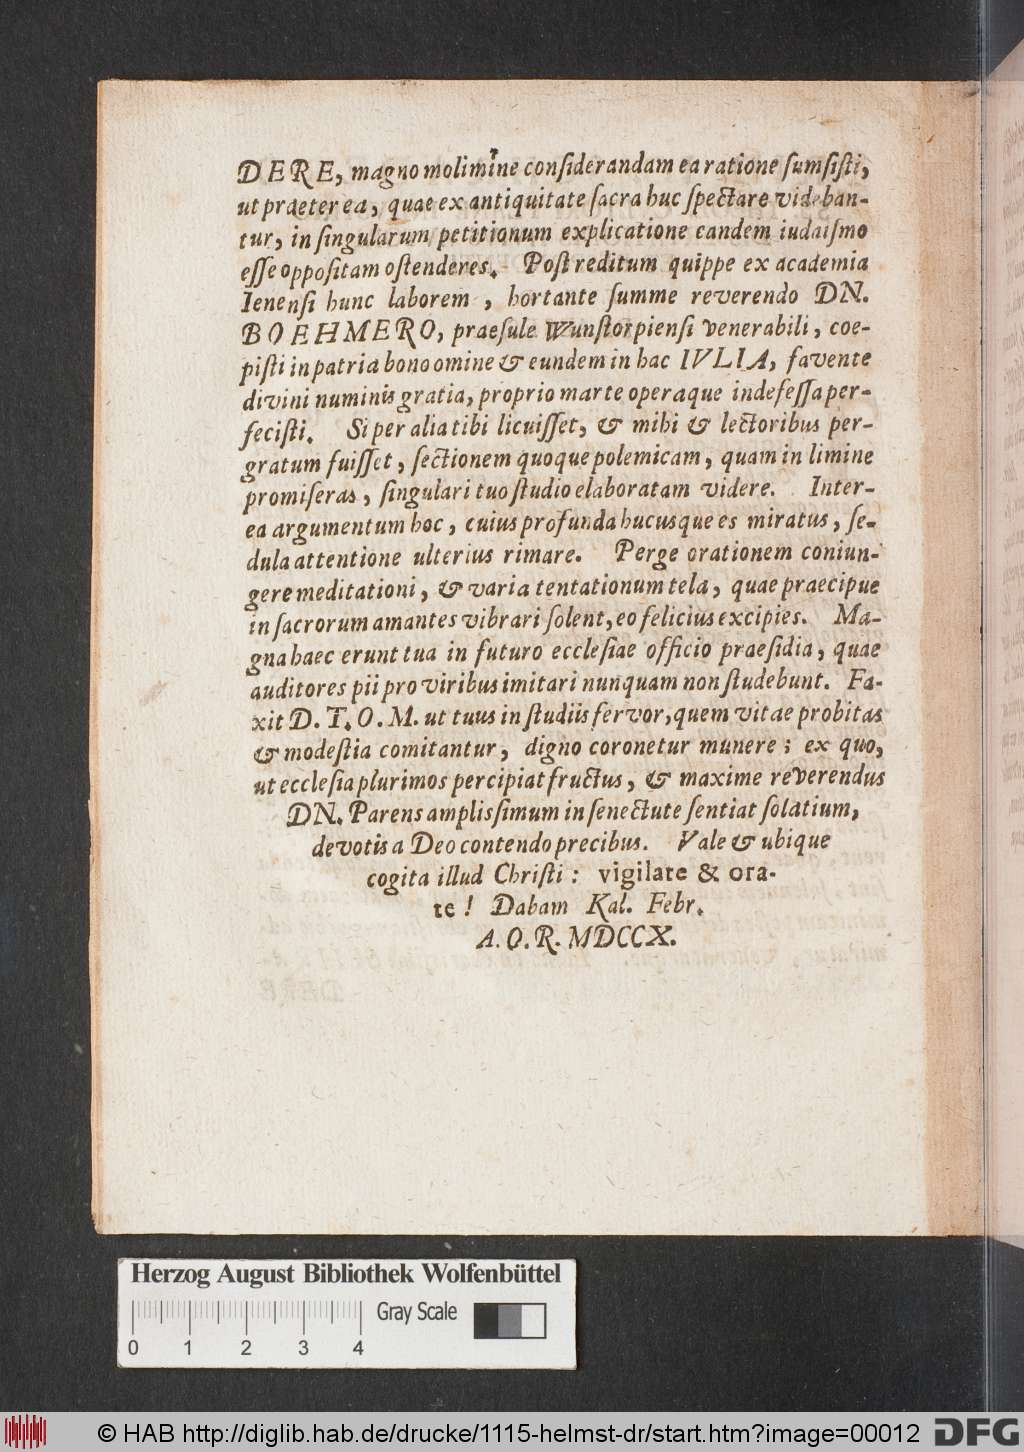 DERE, magno molimine considerandam ea ratione sumsisti,
ut praeter ea, quae ex antiquitate sacra huc spectare videban-
tur, in singularum petitionum explicatione eandem iudaismo
esse oppositam ostenderes. Post reditum quippe ex academia
Ienensi hunc laborem, hortante summe reverendo DN.
BOEHMERO, praesule Wunstorpiensi venerabili, coe-
pisti in patria bono omine & eundem in hac IVLIA, favente
divini numinis gratia, proprio marte operaque indefessa per-
fecisti. Si per alia tibi licuisset, & mihi & lectoribus per-
gratum fuisset, sectionem quoque polemicam, quam in limine
promiseras, singulari tuo studio elaboratam videre. Inter-
ea argumentum hoc, cuius profunda hucusque es miratus, se-
dula attentione ulterius rimare. Perge orationem coniun-
gere meditationi, & varia tentationum tela, quae praecipue
in sacrorum amantes vibrari solent, eo felicius excipies. Ma-
gna haec erunt tua in futuro ecclesiae officio praesidia, quae
auditores pii pro viribus imitari nunquam non studebunt. Fa-
xit D. T. O. M. ut tuus in studiis fervor, quem vitae probitas
& modestia comitantur, digno coronetur munere; ex quo,
ut ecclesia plurimos percipiat fructus, & maxime reverendus
DN. Parens amplissimum in senectute sentiat solatium,
devotis a Deo contendo precibus. Vale & ubique
cogita illud Christi: vigilate & ora-
te! Dabam Kal. Febr.
A. O. R. MDCCX.
Herzog August Bibliothek Wolfenbüttel
Gray Scale
0 1 2 3 4
© HAB http://diglib.hab.de/drucke/1115-helmst-dr/start.htm?image=00012
DFG